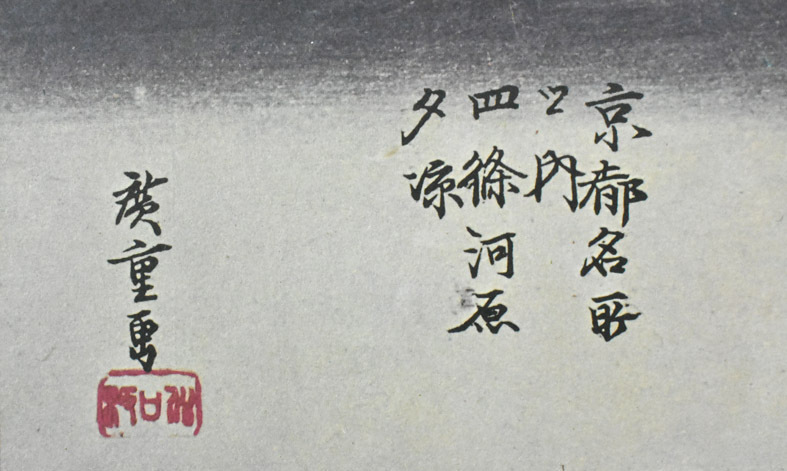 京都名所
之内
四條河原
夕涼
廣重画